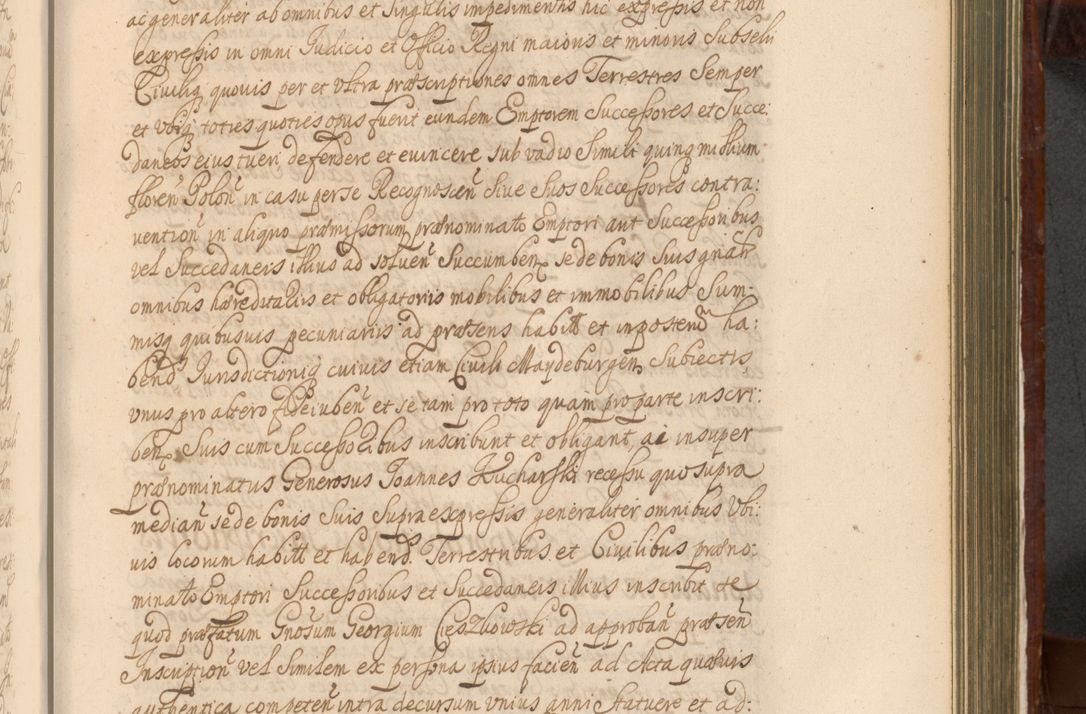 ac generaliter ab omnibus et singulis impedimentis hic expressis et non
expressis in omni Iudicio et Officio Regni maioris et minoris Subselii
Civiliq quovis per et vltra præscriptiones omnes Terrestres Semper
et vbiq toties quoties opus fuerit eundem Emptorem Successores et Succe:
daneos eius tueri defendere et evincere sub vadio Simili quinq millium
floren Polon in casu per se Recognoscen Sive Suos Successores contra:
vention in aliquo præmissorum prænominato Emptori aut Successoribus
vel Succedaneis illius ad solven Succumben se de bonis Suis gnalr
omnibus hæreditariis et obligatoriis mobilibus et immobilibus Sum-
misq quibusvis pecuniariis ad præsens habitt et inposterd ha:
bend Iurisdictioniq cuivis etiam Civili Maydeburgen Subiectis
vnus pro altero fideiuben et se tam pro toto quam pro parte inscri:
ben Suis cum Successoribus inscribunt et obligant, ac insuper
prænominatus Generosus Ioannes Kucharski recessu quo supra
median se de bonis Suis Supra expressis generaliter omnibus Vbi:
vis locorum habitt et habend Terrestribus et Civilibus præno:
minato Emptori Successoribus et Succedaneis illius inscribit se
quod præfatum Gnosum Georgium Cieszkowski ad approban præsen
Inscription vel Similem ex persona ipsius facien ad Acta quævis
authentica competen intra decursum vnius anni Statuere et ad: